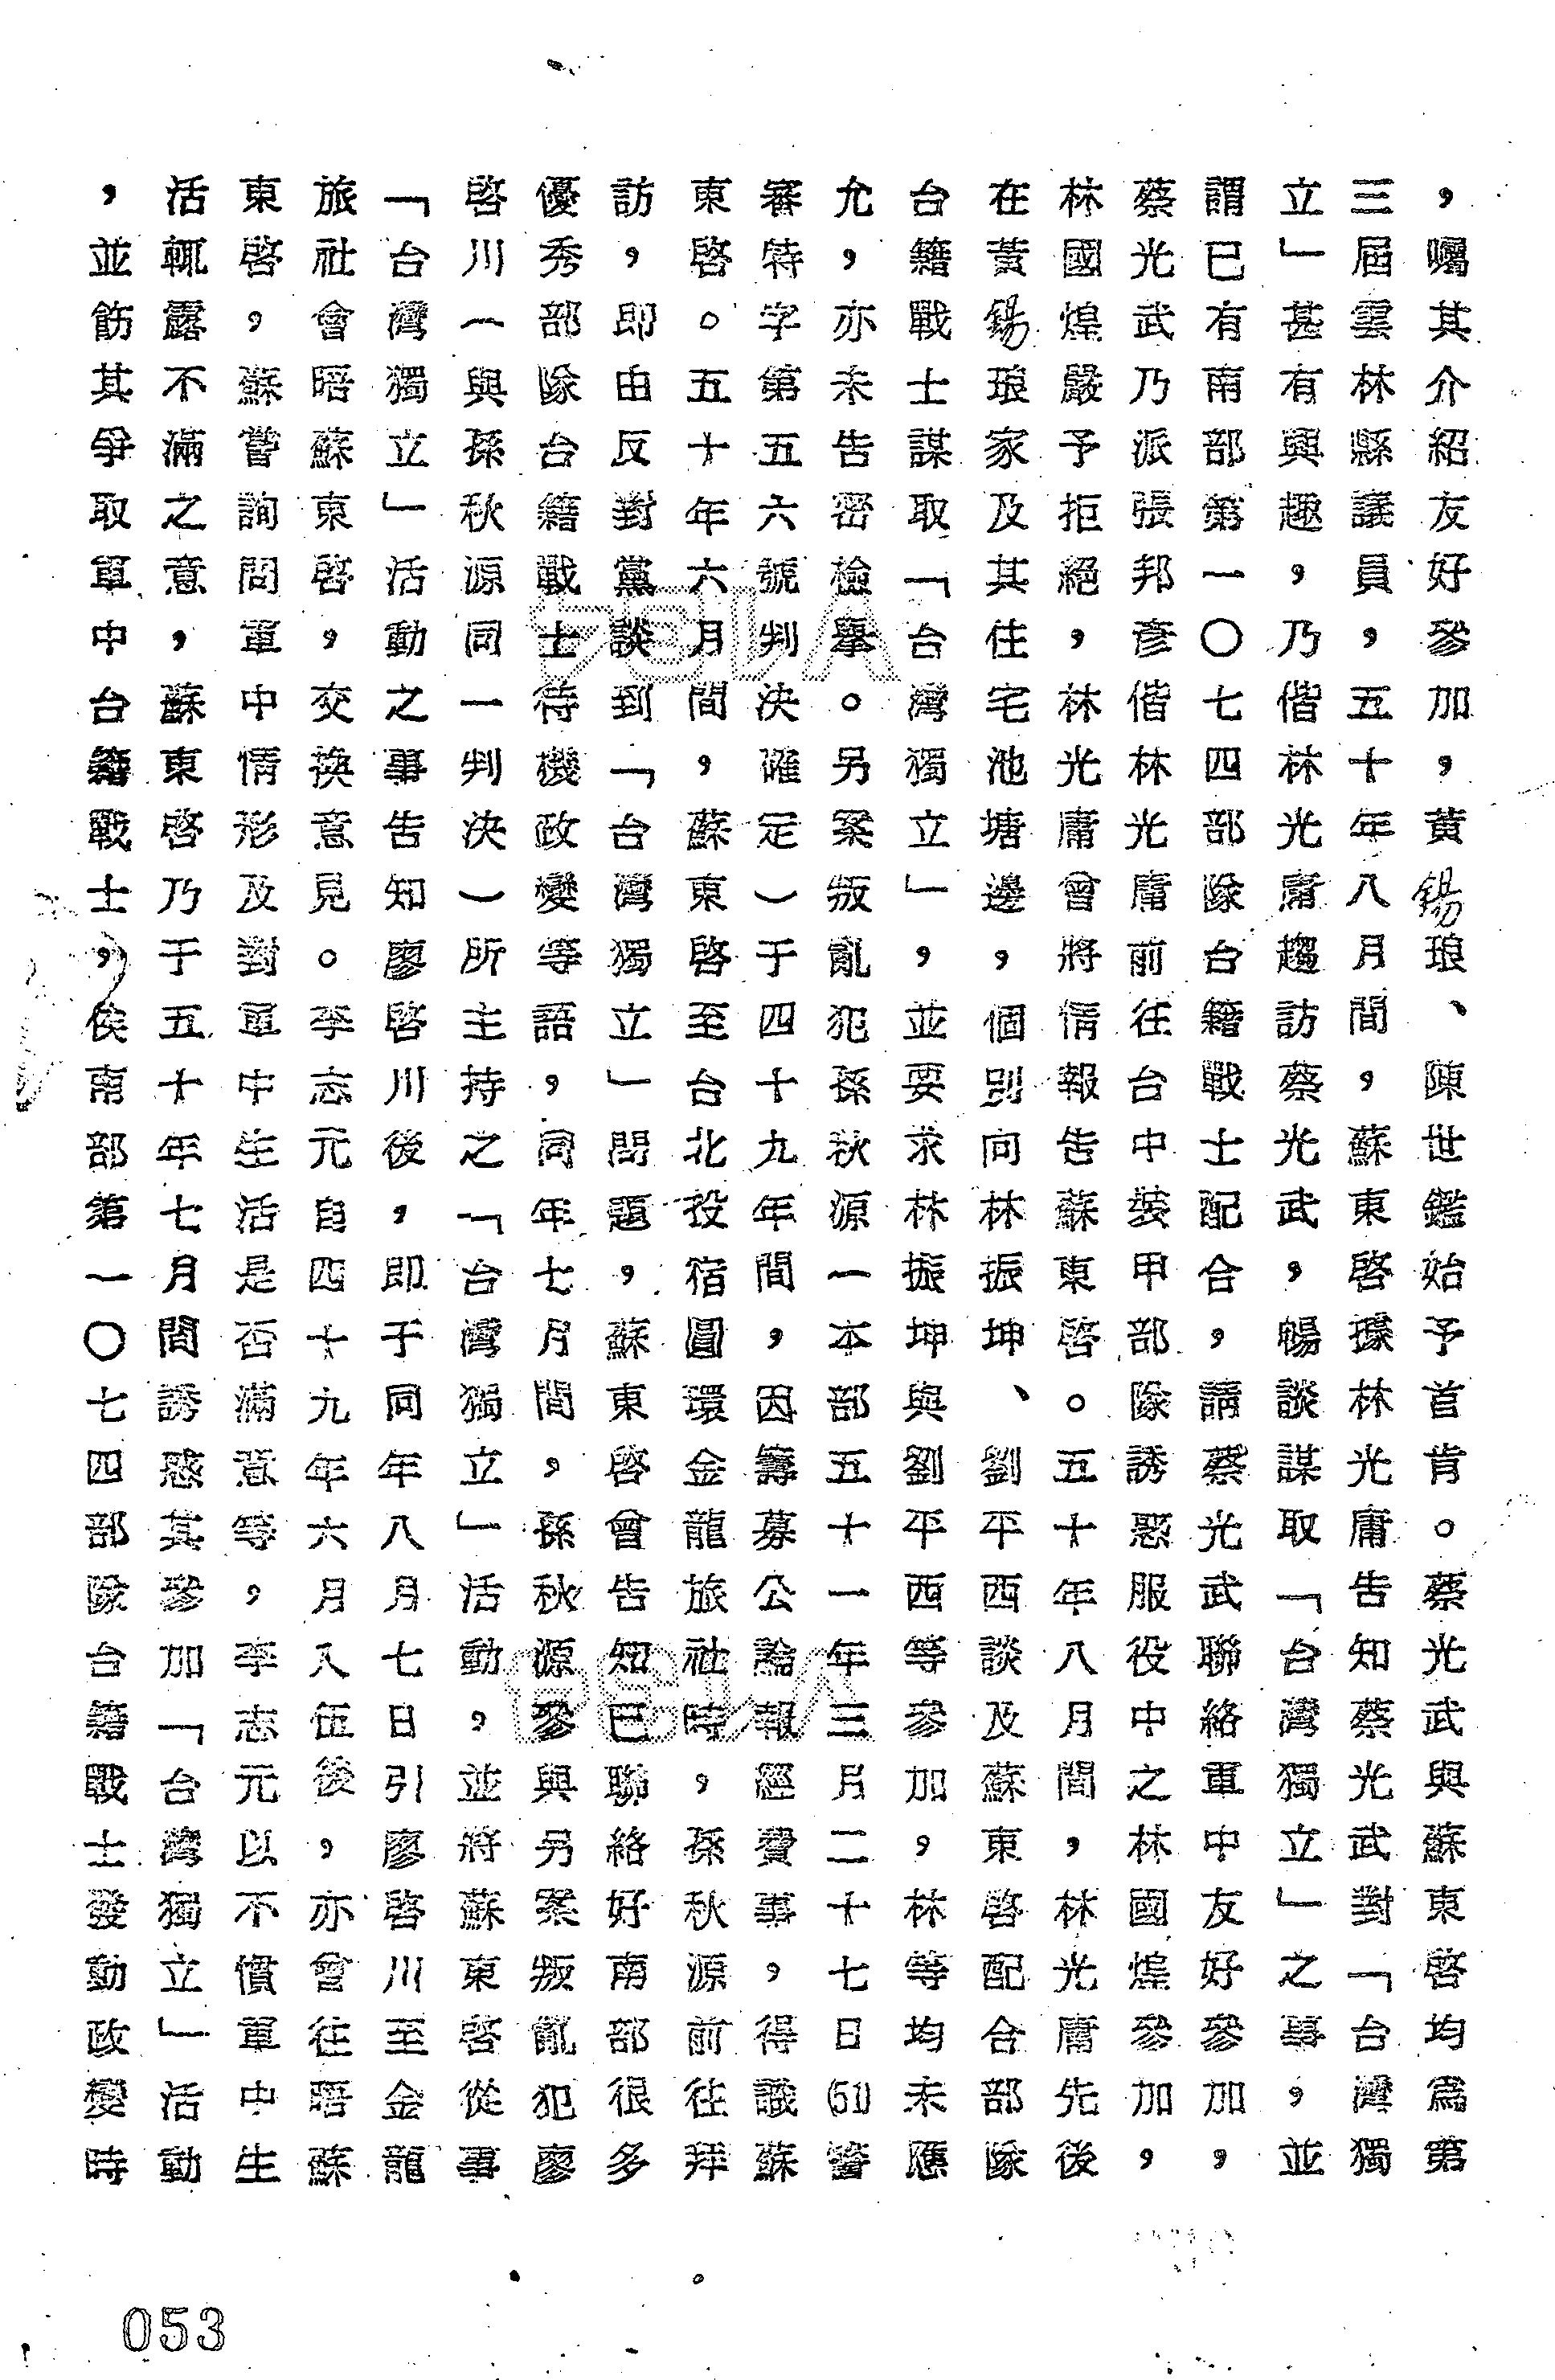 ，囑其介紹友好參加，黃錫琅、陳世鑑始予首肯。蔡光武與蘇東啓均爲第
三屆雲林縣議員，五十年八月間，蘇東啓據林光庸告知蔡光武對「台灣獨
立」甚有興趣，乃偕林光庸趨訪蔡光武，暢談謀取「台灣獨立」之事，並
謂已有南部第一〇七四部隊台籍戰士配合，請蔡光武聯絡軍中友好參加，
蔡光武乃派張邦彥偕林光庸前往台中裝甲部隊誘惑服役中之林國煌參加，
林國煌嚴予拒絕，林光庸曾將情報告蘇東啓。五十年八月間，林光庸先後
在黃錫琅家及其住宅池塘邊，個別向林振坤、劉平西談及蘇東啓配合部隊
台籍戰士謀取「台灣獨立」，並要求林振坤與劉平西等參加，林等均未應
允，亦未告密檢舉。另案叛亂犯孫秋源（本部五十一年三月二十七日(51)警
審特字第五六號判決確定）于四十九年間，因籌募公論報經費事，得識蘇
東啓。五十年六月間，蘇東啓至台北投宿圓環金龍旅社時，孫秋源前往拜
訪，即由反對黨談到「台灣獨立」問題，蘇東啓曾告知已聯絡好南部很多
優秀部隊台籍戰士待機政變等語，同年七月間，孫秋源參與另案叛亂犯廖
啓川（與孫秋源同一判決）所主持之「台灣獨立」活動，並將蘇東啓從事
「台灣獨立」活動之事告知廖啓川後，即于同年八月七日引廖啓川至金龍
旅社會晤蘇東啓，交換意見。李志元自四十九年六月入伍後，亦曾往晤蘇
東啓，蘇嘗詢問軍中情形及對軍中生活是否滿意等，李志元以不慣軍中生
活輒露不滿之意，蘇東啓乃于五十年七月間誘惑其參加「台灣獨立」活動
，並飭其爭取軍中台籍戰士，俟南部第一〇七四部隊台籍戰士發動政變時
053